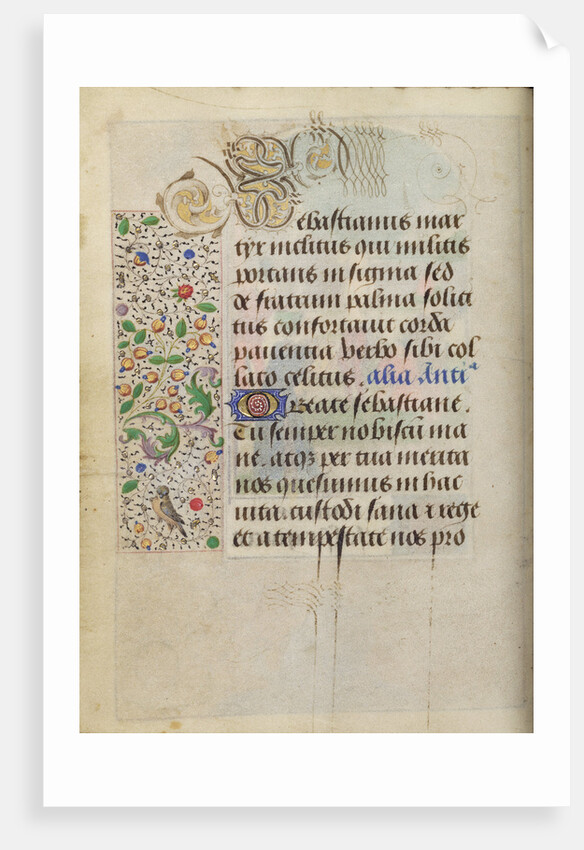 Sebastianus mar
tyr inclitus qui militis
portans in sigma sed
de fratrum palma solici
tus confortauit corda
pauentia verbo sibi col
lato celitus. alia Anti᷎ᵃ
O Beate sebastiane.
Tu semper nobiscū ma
ne. atqꝫ per tua merita
nos quesumus in hac
uita. custodi sana ⁊ rege
et a tempestate nos pro